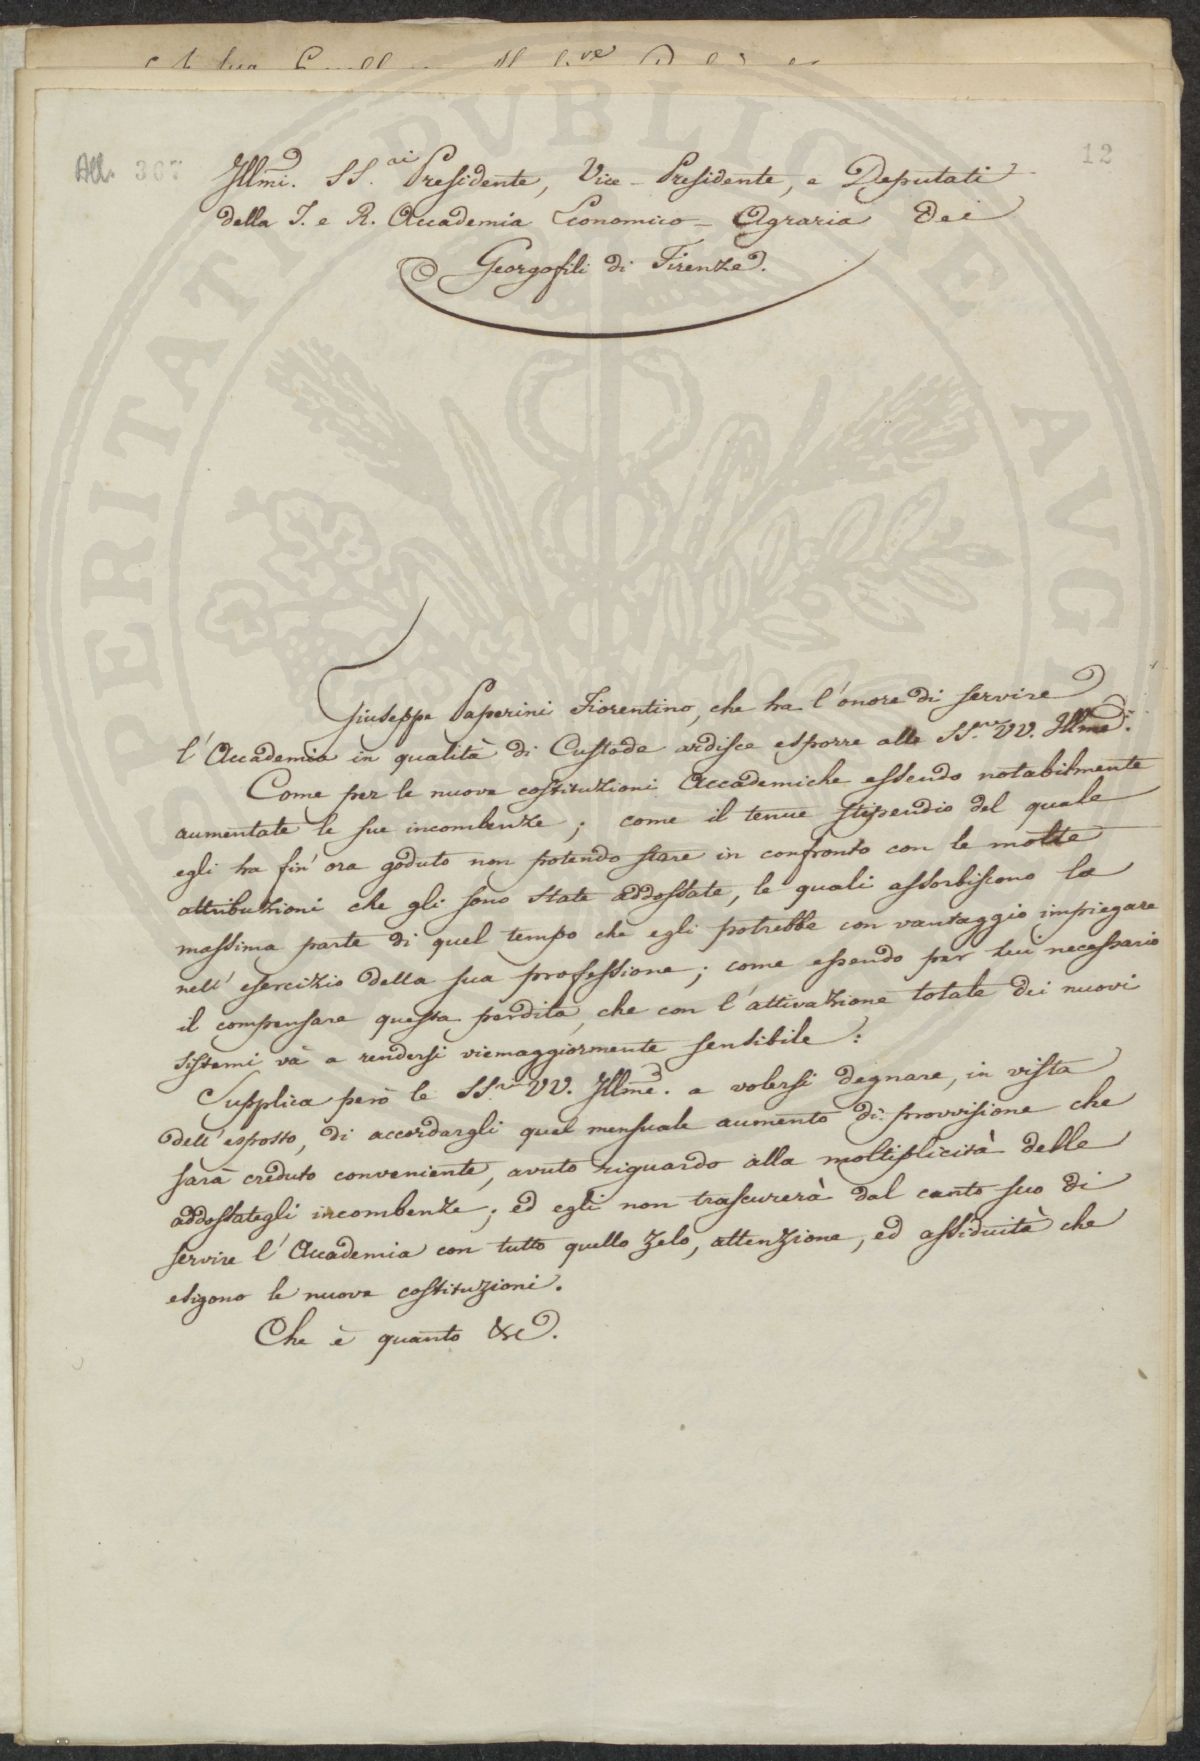 All. 367
12
Illmi. SS.ri Presidente, Vice-Presidente, e Deputati
della I. e R. Accademia Economico-Agraria dei
Georgofili di Firenze.
PVBLICAE
PROSPERITATI
AVGENDAE
Giuseppe Paperini Fiorentino, che ha l'onore di servire
l'Accademia in qualità di Custode ardisce esporre alle SS.rie VV. Illme.
Come per le nuove costituzioni Accademiche essendo notabilmente
aumentate le sue incombenze; come il tenue stipendio del quale
egli ha fin'ora goduto non potendo stare in confronto con le molte
attribuzioni che gli sono state addossate, le quali assorbiscono la
massima parte di quel tempo che egli potrebbe con vantaggio impiegare
nell'esercizio della sua professione; come essendo per lui necessario
il compensare questa perdita, che con l'attivazione totale dei nuovi
sistemi và a rendersi viemaggiormente sensibile:
Supplica però le SS.rie VV. Illme. a volersi degnare, in vista
dell'esposto, di accordargli quel mensuale aumento di provvisione che
sarà creduto conveniente, avuto riguardo alla moltiplicità delle
addossategli incombenze; ed egli non trascurerà dal canto suo di
servire l'Accademia con tutto quello zelo, attenzione, ed assiduità che
esigono le nuove costituzioni.
Che è quanto &c.